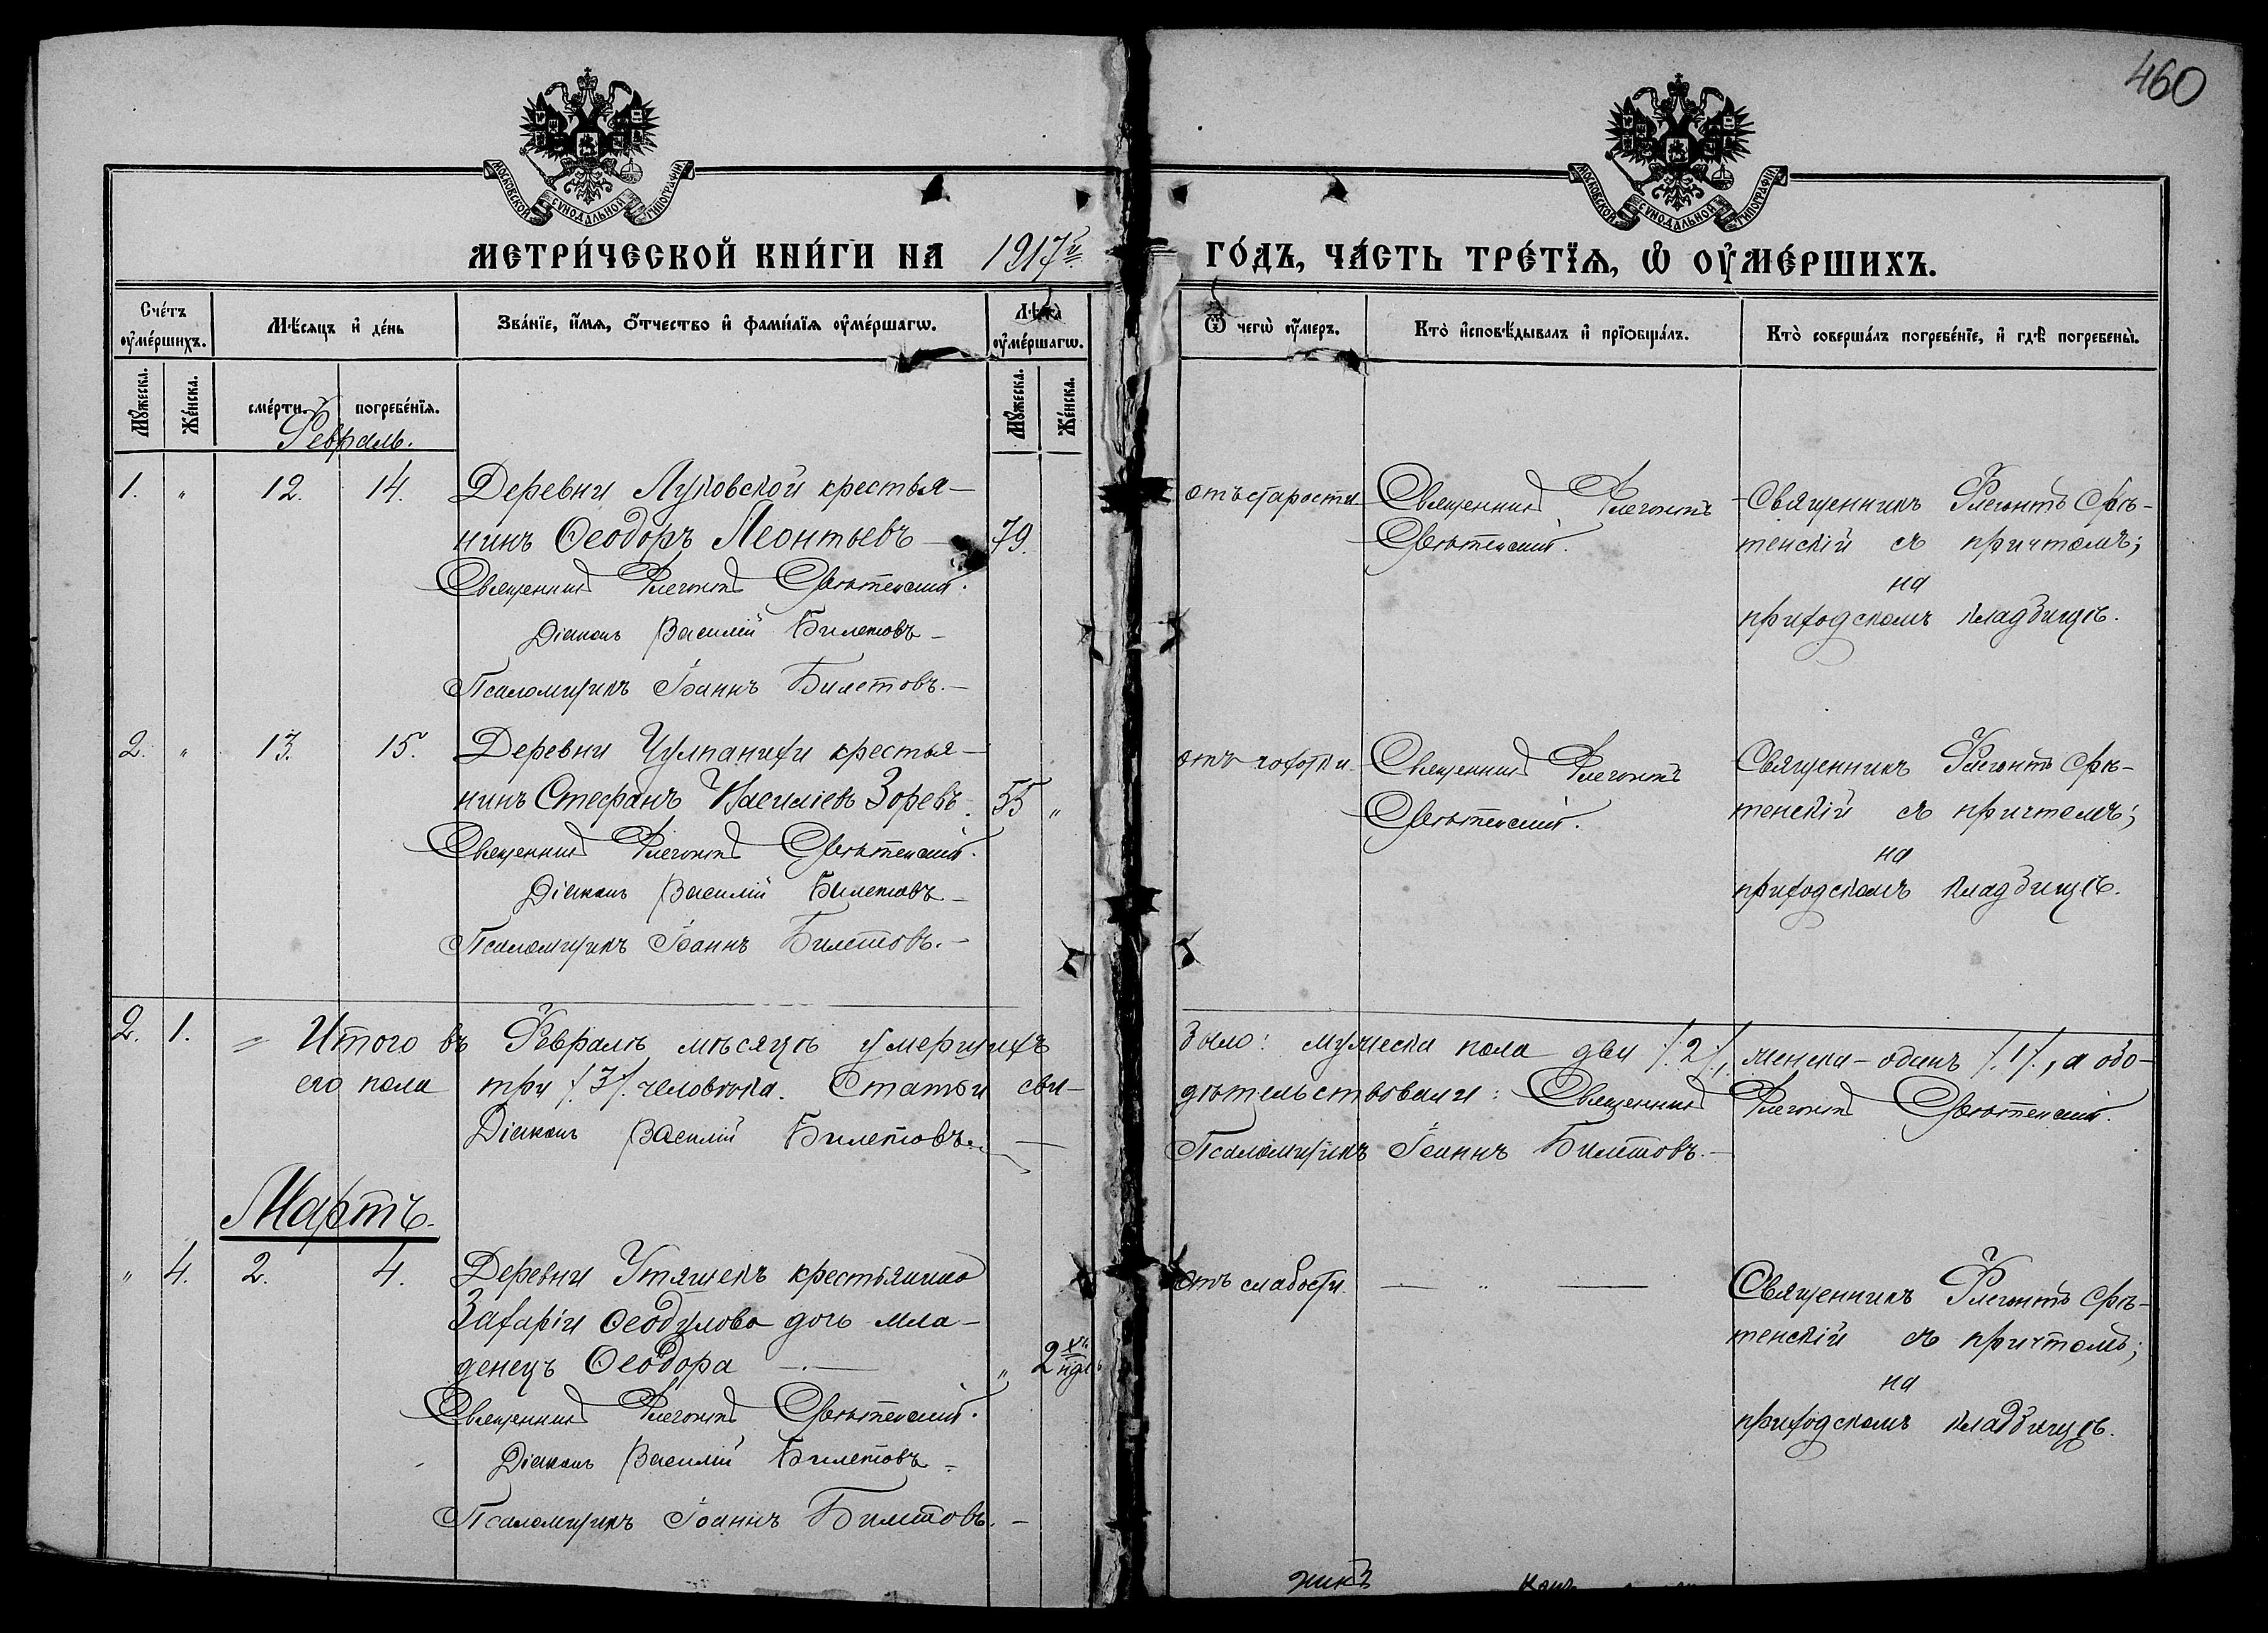 460
МОСКОВСКОЙ СѴНОДАЛЬНОЙ ТИПОГРАФІИ
МОСКОВСКОЙ СѴНОДАЛЬНОЙ ТИПОГРАФІИ
МЕТРИ́ЧЕСКОЙ КНИ́ГИ НА 1917й
ГО́ДЪ, ЧА́СТЬ ТРЕ́ТІѦ, Ѡ҆ ОУ҆МЕ́РШИХЪ.
Сче́тъ оу҆ме́ршихъ.
Мѣ́сяцъ и҆ де́нь
Зва́нїе, и҆́мѧ, ѻ҆́тчество и҆ фами́лїѧ оу҆ме́ршагѡ.
Лѣ́та оу҆ме́ршагѡ.
Ѿ чегѡ̀ оу҆́меръ.
Кто̀ и҆сповѣ́дывалъ и҆ прїѡбща́лъ.
Кто̀ соверша́лъ погребе́нїе, и҆ гдѣ̀ погребены̀.
Мꙋ́жеска.
Же́нска.
сме́рти.
погребе́нїѧ.
Мꙋ́жеска.
Же́нска.
Февраль.
1. " 12. 14. Деревни Луковской крестья-
нинъ Ѳеодоръ Леонтьевъ — 79.
Священникъ Флегонтъ Срѣтенскій.
Діаконъ Василій Билетовъ
Псаломщикъ Іоаннъ Билетовъ.
отъ старости
Священникъ Флегонтъ
Срѣтенскій.
Священникъ Флегонтъ Срѣ-
тенскій съ причтомъ;
на
приходскомъ кладбищѣ.
2. " 13. 15. Деревни Чулпанихи крестья-
нинъ Стефанъ Василіевъ Зоревъ. 55 "
Священникъ Флегонтъ Срѣтенскій.
Діаконъ Василій Билетовъ
Псаломщикъ Іоаннъ Билетовъ.
отъ чохотки
Священникъ Флегонтъ
Срѣтенскій.
Священникъ Флегонтъ Срѣ-
тенскій съ причтомъ;
на
приходскомъ кладбищѣ.
2. 1. Итого въ Февралѣ мѣсяцѣ умершихъ было: мужеска пола два /.2/., женска - одинъ /.1/., а обо-
его пола три /.3/. человѣка. Статьи сви-дѣтельствовали: Священникъ Флегонтъ Срѣтенскій.
Діаконъ Василій Билетовъ. Псаломщикъ Іоаннъ Билетовъ.
Мартъ.
" 4. 2. 4. Деревни Утяшекъ крестьянина
Захаріи Ѳеодулова дочь мла-
денецъ Ѳеодора " 2хъ ндль
Священникъ Флегонтъ Срѣтенскій.
Діаконъ Василій Билетовъ
Псаломщикъ Іоаннъ Билетовъ.
отъ слабости.
— " —
Священникъ Флегонтъ Срѣ-
тенскій съ причтомъ;
на
приходскомъ кладбищѣ.